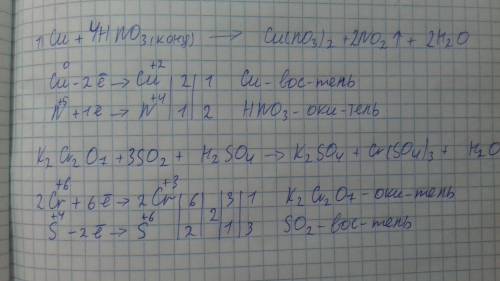 1 Cu + 4HNO3(конц) → Cu(NO3)2 + 2NO2↑ + 2H2O
0 +2
Cu - 2ē → Cu | 2 | 1 Cu - вос-тель
+5 +4
N + 1ē → N | 1 | 2 HNO3 - оки-тель
K2Cr2O7 + 3SO2 + H2SO4 → K2SO4 + Cr(SO4)3 + H2O
+6 +3
2Cr + 6ē → 2Cr | 6 | | 3 | 1 K2Cr2O7 - оки-тель
+4 +6 2
S - 2ē → S | 2 | | 1 | 3 SO2 - вос-тель